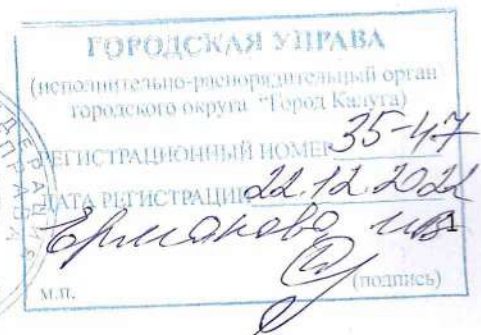 ГОРОДСКАЯ УПРАВА
(исполнительно-распорядительный орган
городского округа "Город Калуга)
РЕГИСТРАЦИОННЫЙ НОМЕР 35-47
ДАТА РЕГИСТРАЦИИ 22.12.2022
Ермакова
М.П. (подпись)